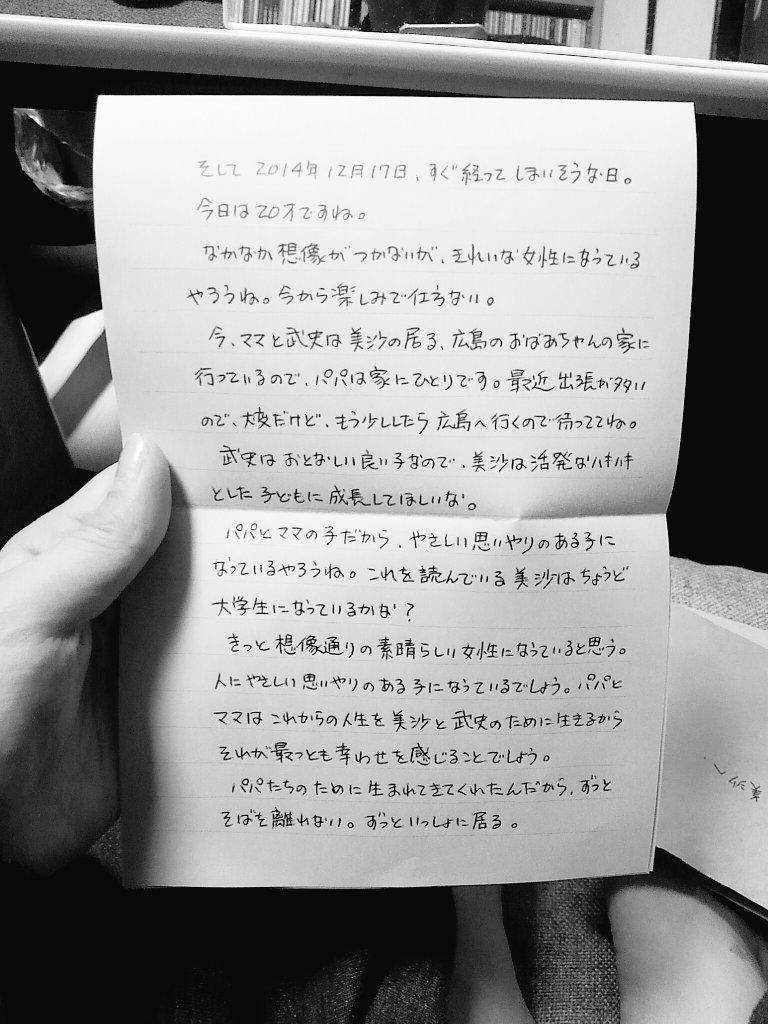 そして 2014年12月17日、すぐ経ってしまいそうな日。
今日は20才ですね。
なかなか想像がつかないが、きれいな女性になっている
やろうね。今から楽しみで仕方ない。
今、ママと武史は美沙の居る、広島のおばあちゃんの家に
行っているので、パパは家にひとりです。最近出張が多い
ので、大変だけど、もう少ししたら広島へ行くので待っててね。
武史はおとなしい良い子なので、美沙は活発なハキハキ
とした子どもに成長してほしいな。
パパとママの子だから、やさしい思いやりのある子に
なっているやろうね。これを読んでいる美沙はちょうど
大学生になっているかな?
きっと想像通りの素晴らしい女性になっていると思う。
人にやさしい思いやりのある子になっているでしょう。パパと
ママはこれからの人生を美沙と武史のために生きるから
それが最っとも幸わせを感じることでしょう。
パパたちのために生まれてきてくれたんだから、ずっと
そばを離れない。ずっといっしょに居る。
美沙へ